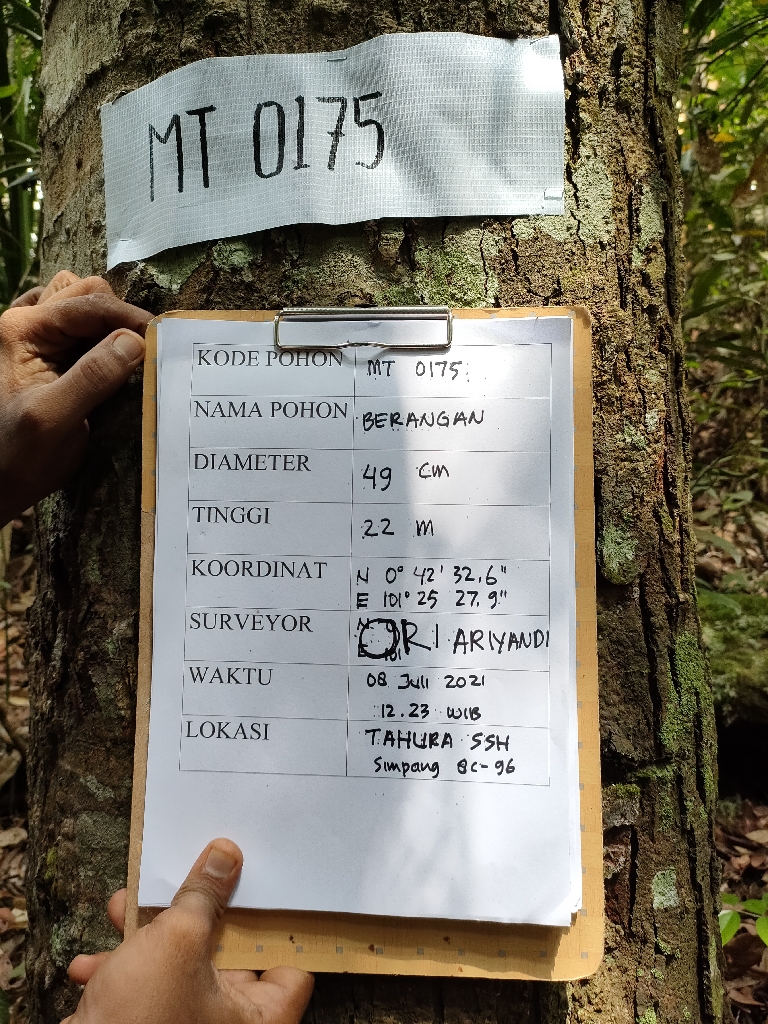 MT 0175
KODE POHON MT 0175
NAMA POHON BERANGAN
DIAMETER 49 cm
TINGGI 22 m
KOORDINAT N 0° 42' 32.6"
E 101° 25 27.9"
SURVEYOR ORI ARIYANDI
WAKTU 08 Juli 2021
12.23 WIB
LOKASI TAHURA SSH
Simpang BC-96